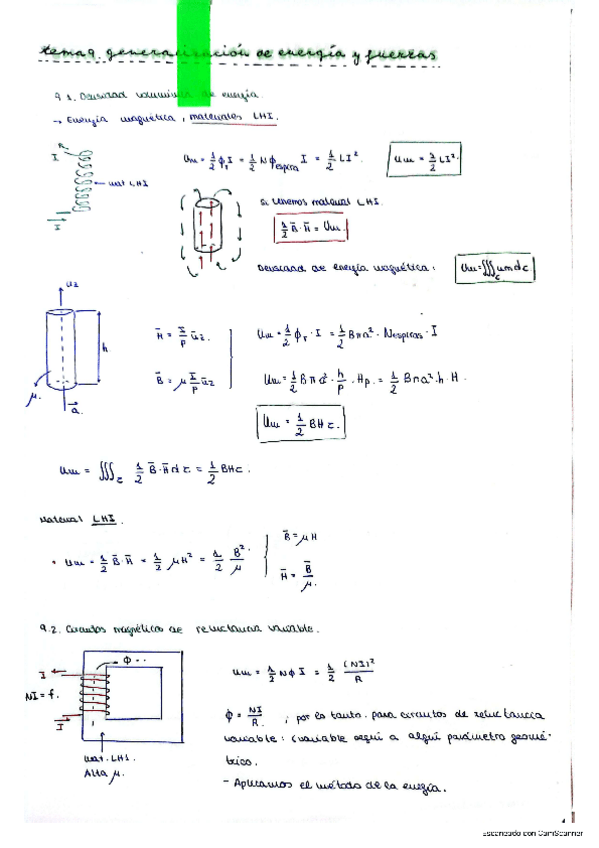 tema 9. generalización de energía y fuerzas
9.1. Densidad volumínica de energía.
→ Energía magnética, materiales LHI.
R
I
mat LHI
I
Um = 1/2 ϕ_T I = 1/2 N ϕ_espira I = 1/2 LI².
Um = 1/2 LI².
Si tenemos material LHI.
1/2 B̄·H̄ = Um.
Densidad de energía magnética:
Um = ∭_τ um dτ
uz
h
μ.
a.
H̄ = I/p ūz.
B̄ = μ I/p ūz
Um = 1/2 ϕ_T · I = 1/2 Bπa² · Nespiras · I
Um = 1/2 Bπa² · h/p · Hp. = 1/2 Bπa². h. H.
Um = 1/2 BHτ.
Um = ∭_τ 1/2 B̄·H̄ dτ = 1/2 BHτ.
Material LHI.
Um = 1/2 B̄·H̄ = 1/2 μH² = 1/2 B²/μ.
B̄ = μH
H̄ = B̄/μ.
9.2. Circuitos magnéticos de reluctancia variable.
ϕ
I
NI = f.
I
mat. LHI.
Alta μ.
Um = 1/2 NϕI = 1/2 (NI)²/R
ϕ = NI/R. , por lo tanto. para circuitos de reluctancia
variable: (variable según a algún parámetro geomé-
trico.
- Aplicamos el método de la energía.
Escaneado con CamScanner